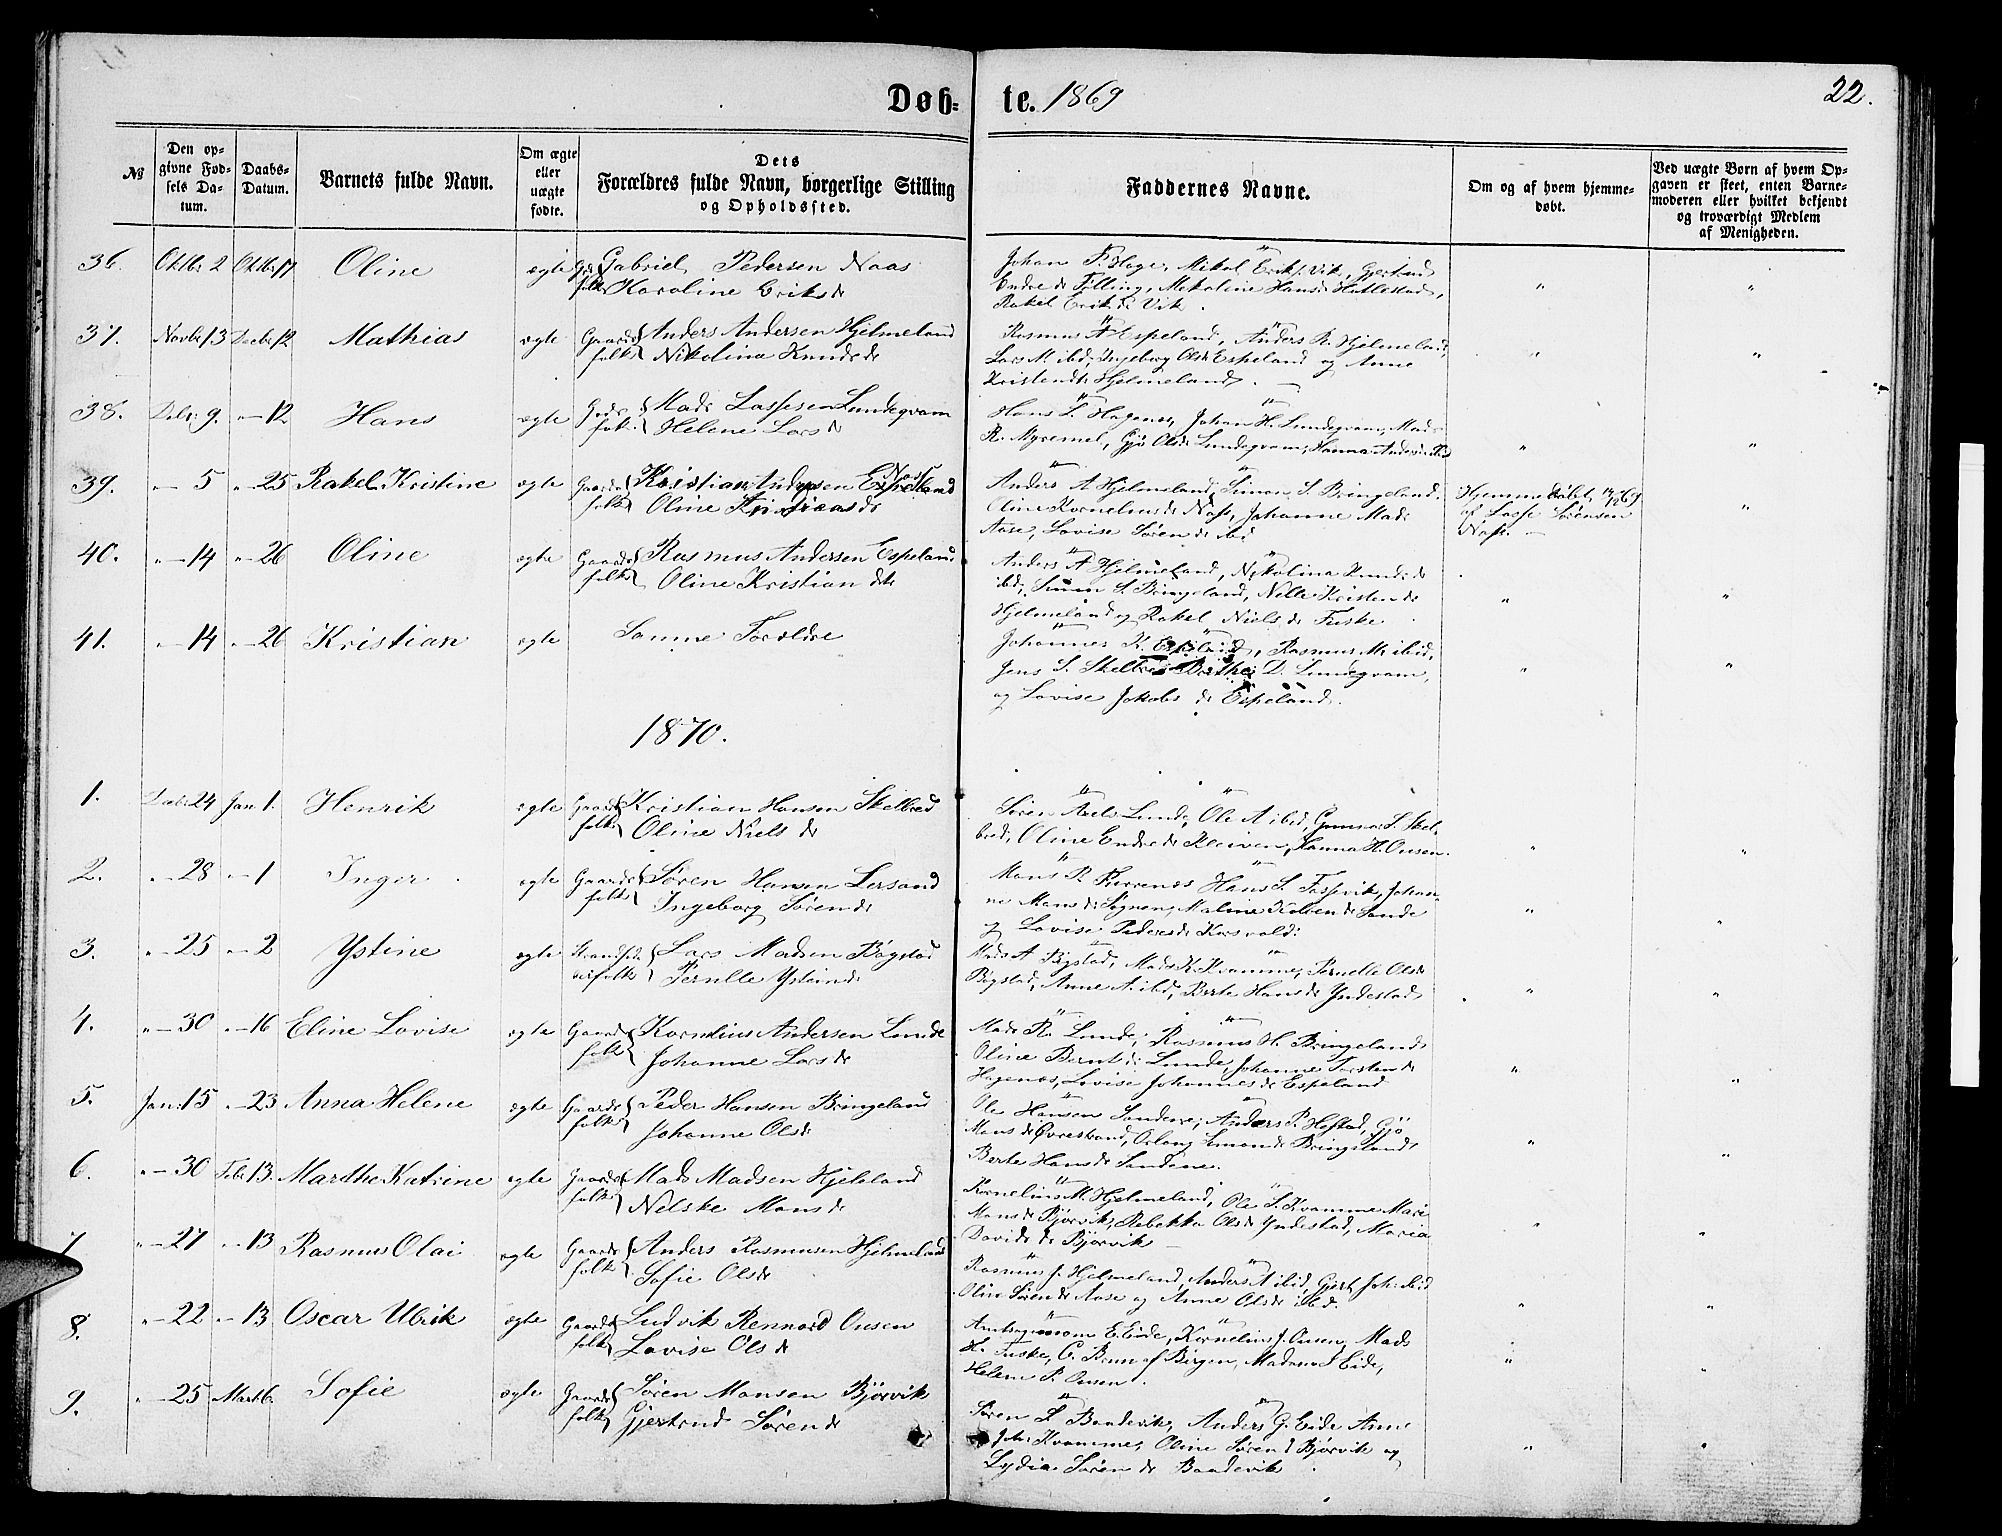 Døb= te. 1869
22.
№
Den op=
givne Fød=
sels Da=
tum.
Daabs=
Datum.
Barnets fulde Navn.
Om ægte
eller
uægte
fødte.
Dets
Forældres fulde Navn, borgerlige Stilling
og Opholdssted.
Faddernes Navne.
Om og af hvem hjemme=
døbt.
Ved uægte Børn af hvem Op=
gaven er skeet, enten Barne=
moderen eller hvilket bekjendt
og troværdigt Medlem
af Menigheden.
36. Oktbr 2 Oktbr 17 Oline ægte Gabriel Pedersen Naas
folk Karoline Eriksdr
Johan P. Hage, Mikal Eriks. Vik, Gjertrud
Endredr Felling, Mikaline Hansdr Hatlestad,
Rakel Eriksdr Vik.
37. Novbr 13 Decbr 12 Mathias ægte Gaard Anders Andersen Hjelmeland
folk Nikolina Knudsdr
Rasmus A Espeland, Anders R. Hjelmeland,
Lars M. ibid, Ingeborg Olsdr Espeland og Anne
Kristendr Hjelmeland.
38. 9. " 12 Hans ægte Mads Lassesen Lundeqvam
folk Helene Larsdr
Hans L. Hagenes, Johan H. Lundeqvam, Mads
R. Myremel, Gjø Olsdr Lundeqvam, Hanna
39. " 5 " 25 Rakel Kristine ægte Gaard Kristian Andersen Naas
folk Oline
Anders A Hjelmeland, Simon S. Bringeland,
Oline Kornelusdr Nass, Johanne Mads
Aase, Lovise Sørendr ibid
Hjemmedøbt
af Lasse Sørensen
Nass.
40. " 14 " 26 Oline ægte Gaard Rasmus Andersen Espeland
folk Oline Kristiandtr
Anders A Hjelmeland, Nikolina Knudsdr
ibid, Simon S. Bringeland, Nille Kristendr
Hjelmeland og Rakel Nielsdr Fuske
41. " 14 " 26 Kristian ægte Samme Forældre
Johannes K. Espeland, Rasmus M. ibid,
Jens S. Skelbred, Brithe D. Lundeqvam,
og Lovise Jakobsdr Espeland.
1870.
1. Decbr 24 Jan 1. Henrik ægte Gaard Kristian Hansen Skelbred
folk Oline Nielsdr
Søren Axels Lunde, Ole A ibid, Gunnar S. Skel=
bred, Oline Endredr Kleiven, Hanna H. Ousen.
2. " 28 " 1 Inger ægte Gaard Søren Hansen Lersand
folk Ingeborg Sørendr
Mons R. Hans S. Tassevik, Johan=
ne Monsdr Sognen, Maline Sande
og Lovise Pedersdr Korsvold.
3. " 25 " 2 Ystine ægte Strandsid
erfolk Lars Madsen Bøgstad
Pernlle
Mads A Bøgstad, Mads K. Kvamme, Pernelle Olsdr
Bøgstad, Anne A. ibid, Berte Hansdr Yndestad
4. " 30 " 16 Eline Lovise ægte Gaard Kornelius Andersen Lunde
folk Johanne Larsdr
Mads R. Lunde, Rasmus H. Bringeland
Oline Berntdr Lunde, Johanne Torstendr
Hagenæs, Lovise Johannesdr Espeland
5. Jan 15 " 23 Anna Helene ægte Gaard Peder Hansen Bringeland
folk Johanne Olsdr
Ole Hansen Sandene, Anders P. Hestad, Gjø
Monsdr Øvrestrand, Simondr Bringeland
Berte Hansdr Sandene.
6. " 30 Febr 13. Marthe Katrine ægte Gaard Mads Madsen Hjeleland
folk Nelske Monsdr
Kornelius M. Hjelmeland, Ole S. Kvamme Mari
Monsdr Bjørvik, Rebekka Olsdr Yndestad, Maria
Daviddr Bjørvik
7 " 27 " 13 Rasmus Olai ægte Gaard Anders Rasmusen Hjelmeland
folk Sofie Olsdr
Rasmus J. Hjelmeland, Anders A ibid, Gjert Joh. ibid
Oline Sørendr Aase og Anne Olsdr ibid.
8. " 22 " 13 Oscar Ulrik ægte Gaard Ludvik Rennord Ousen
folk Lovise Olsdr
E. Eide, Kornelius J. Ousen, Mads
H. Fuske, C. Brun af Bergen, Madam S Eide,
Helene P. Ousen.
9. " 25 Marts 6. Sofie ægte Gaard Søren Monsen Bjørvik
folk Gjertrud Sørendr
Søren L Baadevik, Anders G. Eide Anne
Joh. Kvamme, Oline Sørend Bjørvik og
Lydia Sørendr Baadevik.